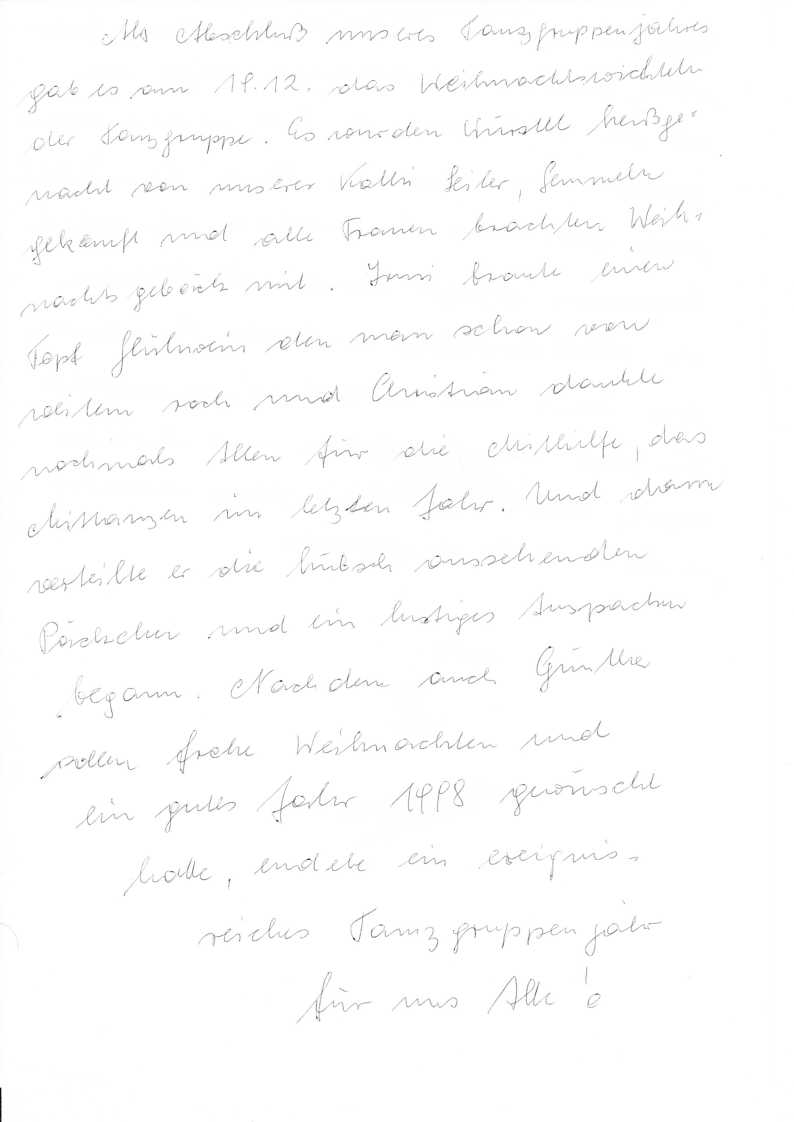 Als Abschluß unseres Tanzgruppenjahres
gab es am 19.12. das Weihnachtswichteln
der Tanzgruppe. Es wurden Würstel heißge-
macht von unserer Kathi Seiler, Semmeln
gekauft und alle Frauen brachten Weih-
nachtsgebäck mit. braute einen
Topf Glühwein den man schon von
weitem roch und Christian dankte
nochmals Allen für die Mithilfe, das
Mittanzen im letzten Jahr. Und dann
verteilte er die hübsch aussehenden
Päckchen und ein lustiges Auspacken
begann. Nachdem auch Günther
allen frohe Weihnachten und
ein gutes Jahr 1998 gewünscht
hatte, endete ein ereignis-
reiches Tanzgruppenjahr
für uns Alle!